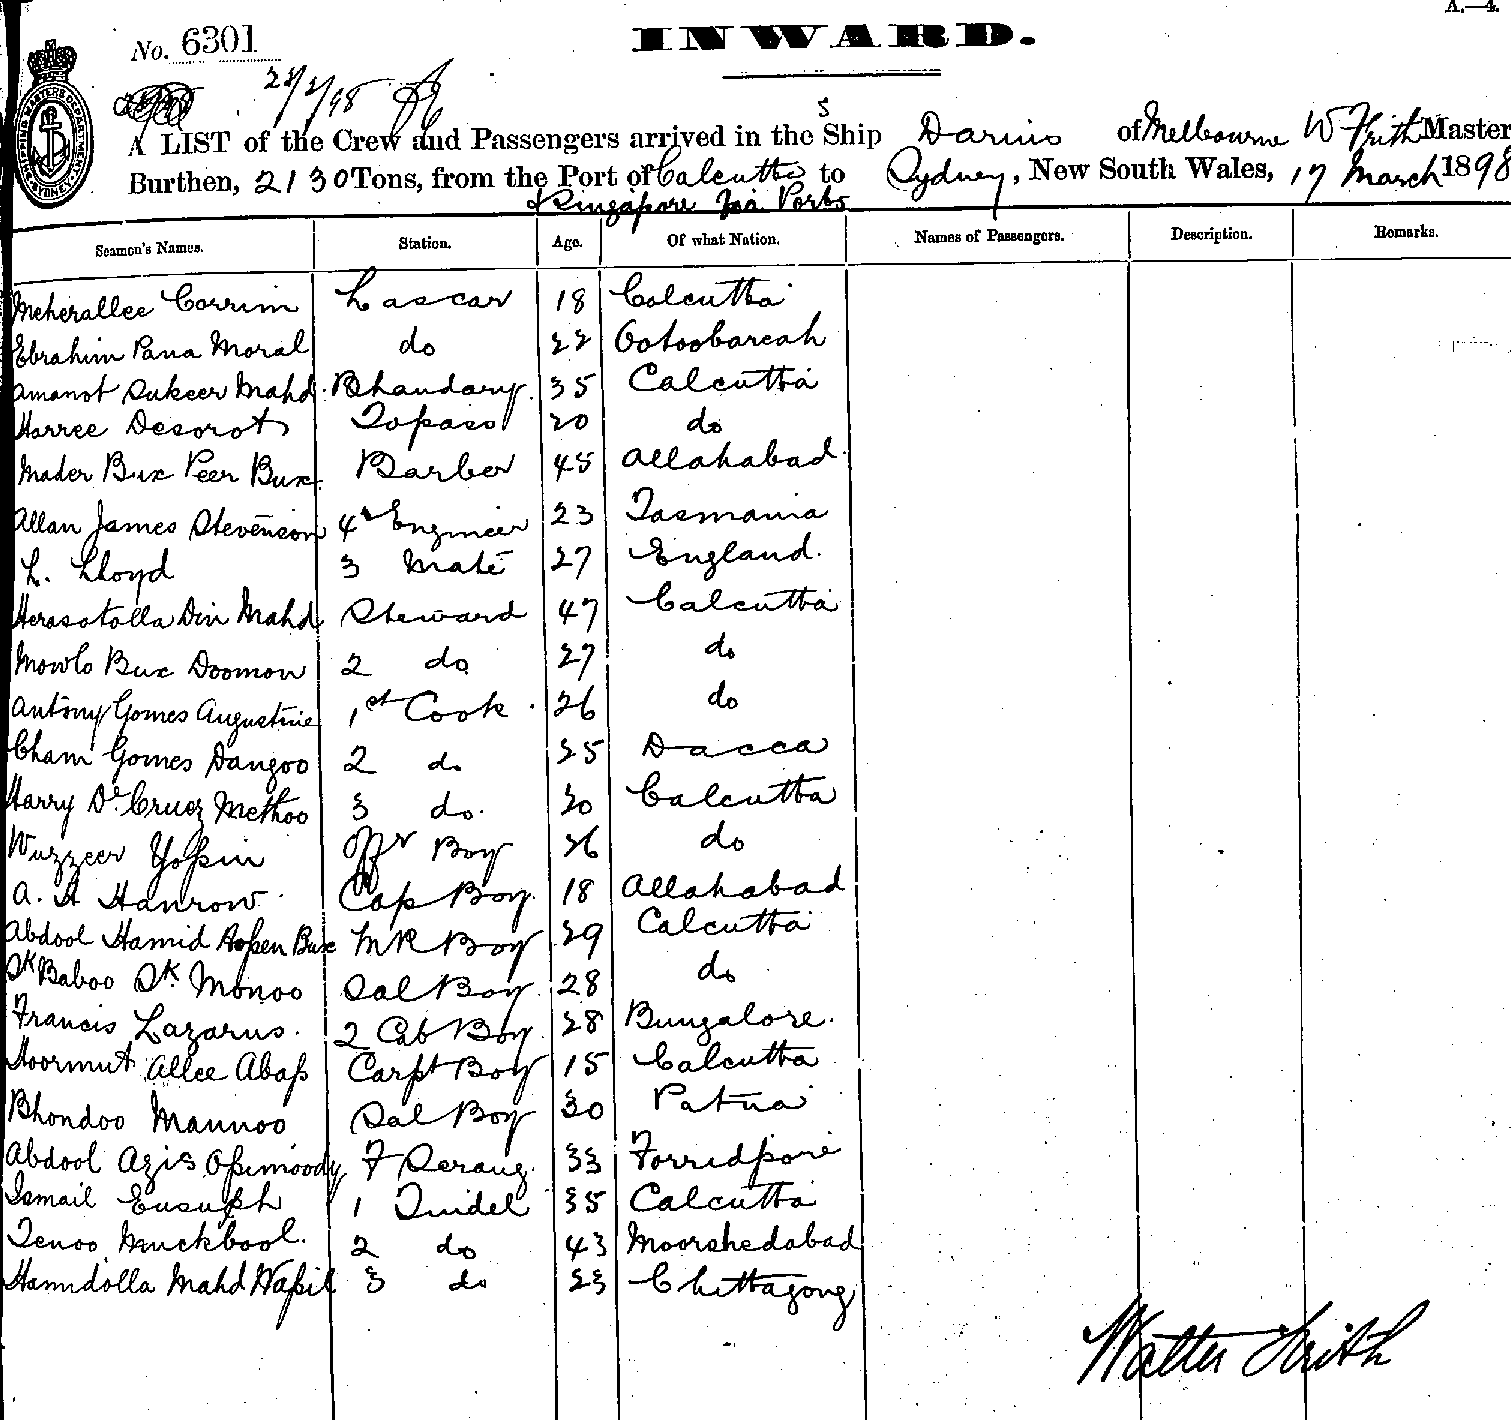 A.—4.
No. 6301
INWARD.
SHIPPING MASTERS DEPARTMENT SYDNEY
A LIST of the Crew and Passengers arrived in the S Ship Darius of Melbourne W Frith Master
Burthen, 2130 Tons, from the Port of Calcutta to Sydney, New South Wales, 17 March 1898
& Singapore via Ports
Seamen's Names. Station. Age. Of what Nation. Names of Passengers. Description. Remarks.
Meherallee Corrim Lascar 18 Calcutta
Ebrahim Pana Moral do 22 Ootoobareah
Amanot Sukeer Mahd. Bhandary 35 Calcutta
Harree Desorot Topass 20 do
Mader Bux Peer Bux Barber 45 Allahabad
Allan James Stevenson 4th Engineer 23 Tasmania
L. Lloyd 3 Mate 27 England.
Herasotolla Din Mahd Steward 47 Calcutta
Mowlo Bux Doomon 2 do 27 do
Antony Gomes Augustine 1st Cook 26 do
Cham Gomes Dangoo 2 do 25 Dacca
Harry De Cruez Methoo 3 do. 20 Calcutta
Wuzzeer Yossin Offr Boy 26 do
A. H Hanrow Cap Boy 18 Allahabad
Abdool Hamid Bux MR Boy 29 Calcutta
Sk Baboo Sk. Monoo Sal Boy 28 do
Francis Lazarus. 2 Cab Boy 28 Bungalore.
Hoormut Allee Abass Carpt Boy 15 Calcutta
Bhondoo Mannoo Sal Boy 30 Patna
Abdool Azis Ossimoody F Serang 33 Forridpore
Ismail Eusuph 1 Tindel 35 Calcutta
Tenoo Muckbool. 2 do 43 Moorshedabad
Hamidolla Mahd Wasil 3 do 23 Chittagong
Walter Frith